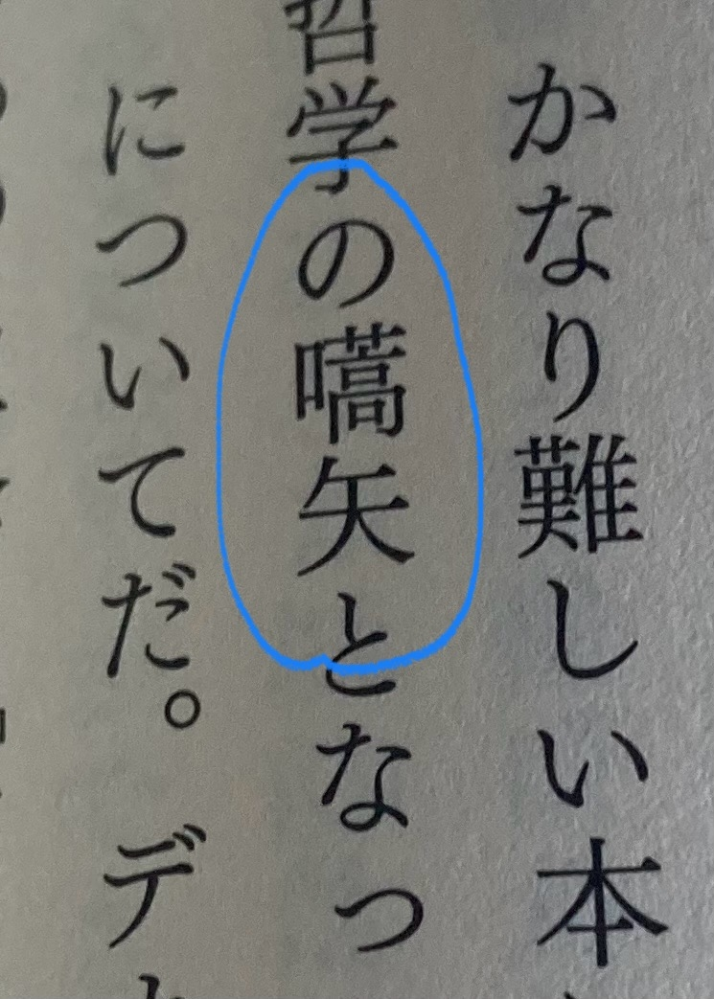 かなり難しい本
哲学の嚆矢となっ
についてだ。デ